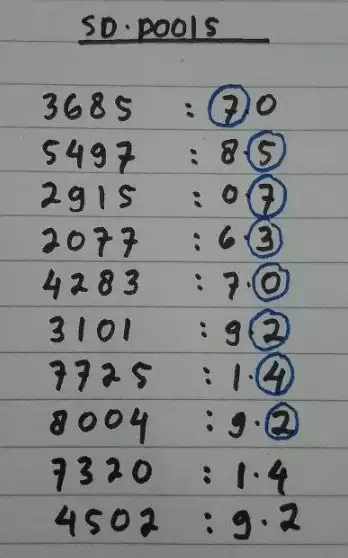 SD.POOLS
3685 : 7.0
5497 : 8.5
2915 : 0.7
2077 : 6.3
4283 : 7.0
3101 : 9.2
7725 : 1.4
8004 : 9.2
7320 : 1.4
4502 : 9.2